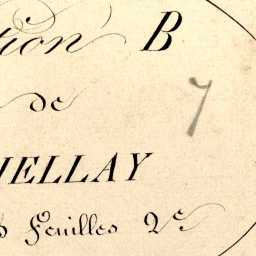 tion B
de
7
IELLAY
s Feuilles 2e